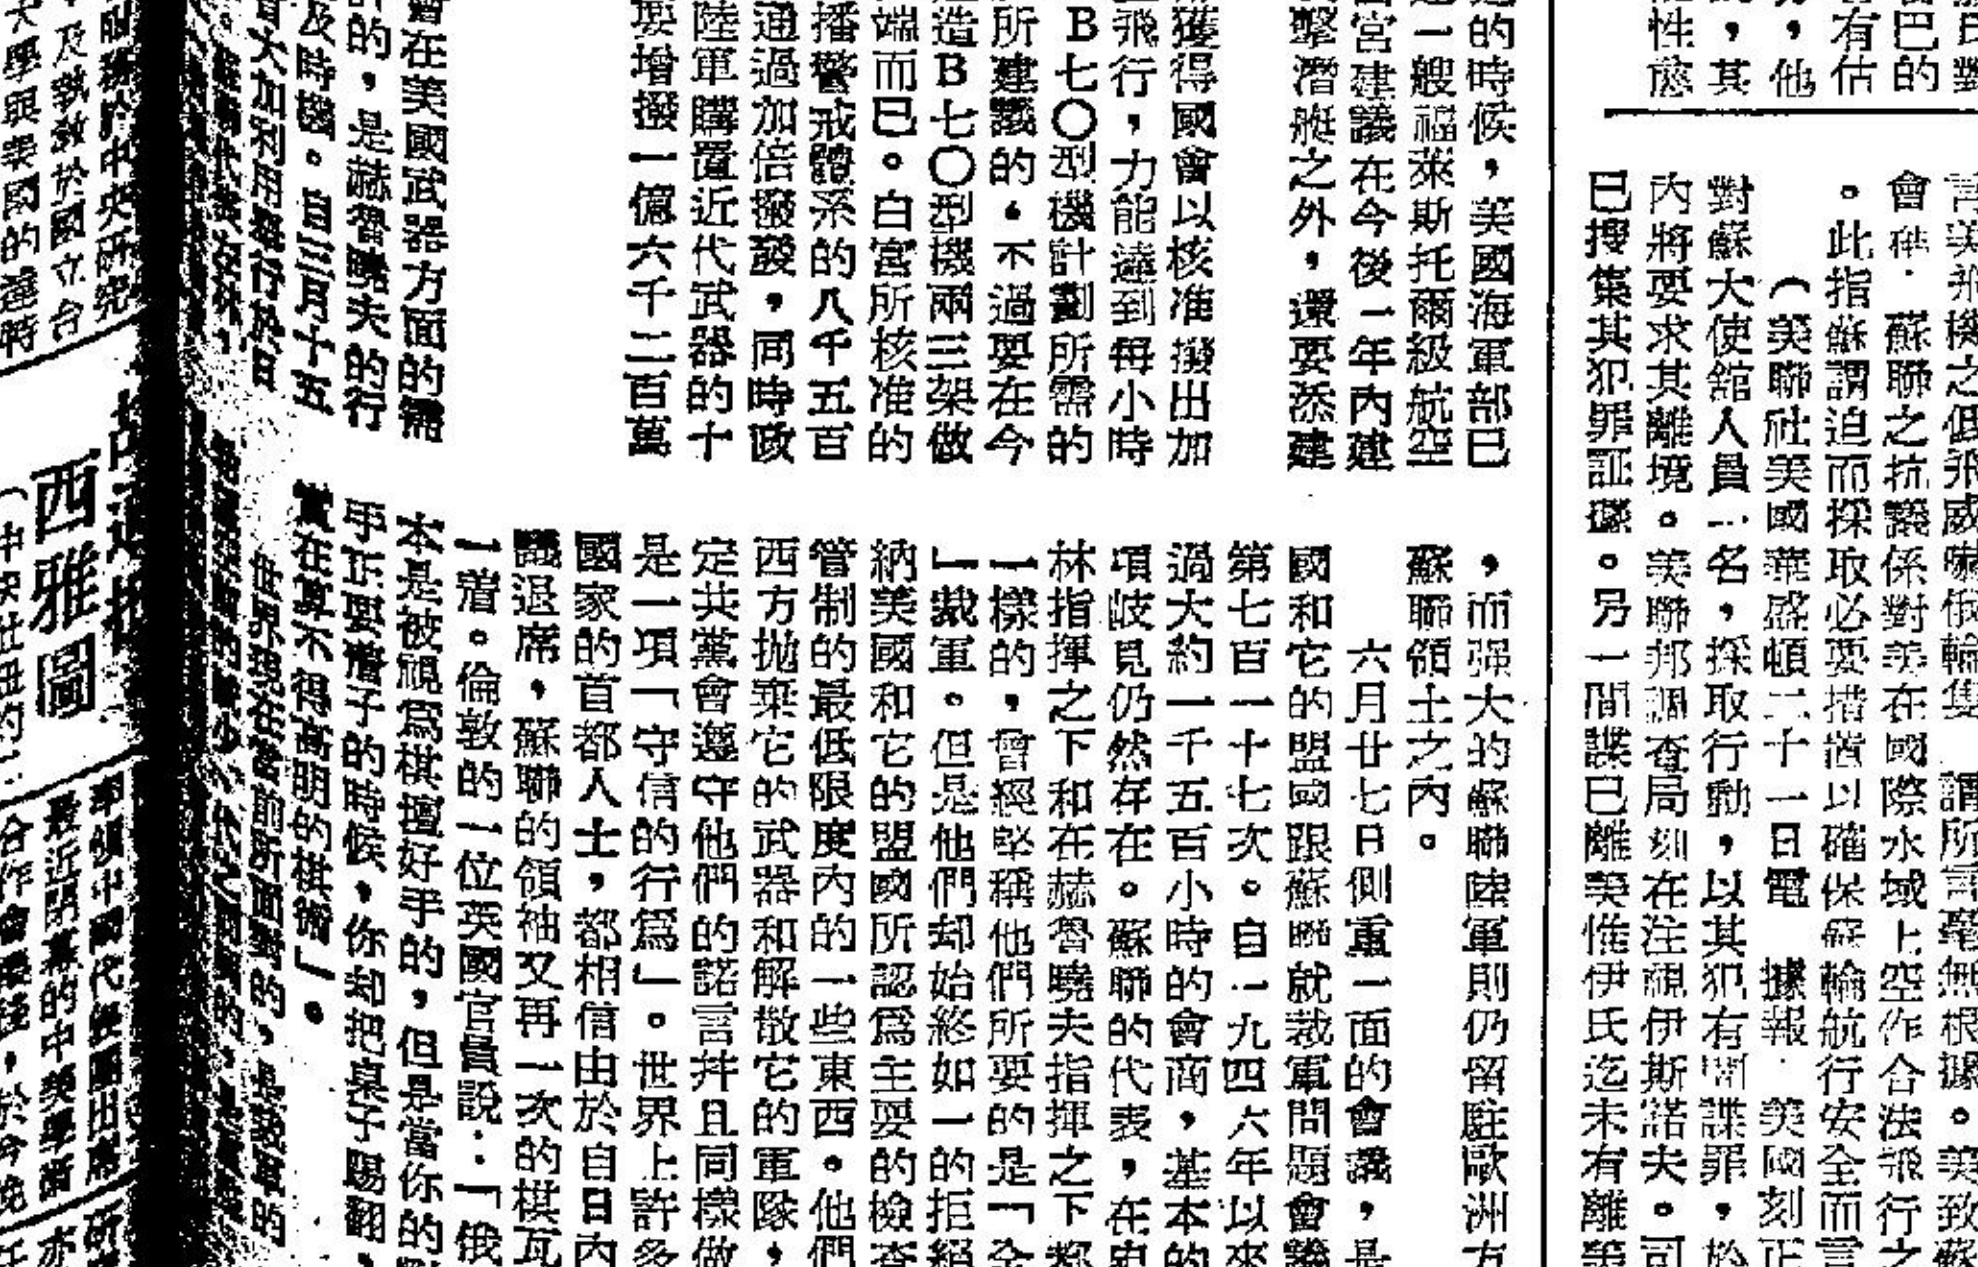 氏對
巴的
有估
，他
，其
性應
言美飛機之低飛威嚇俄輪隻 謂所言毫無根據。美致蘇
會稱．蘇聯之抗議係對美在國際水域上空作合法飛行之
。此指蘇謂迫而採取必要措置以確保蘇輪航行安全而言
（美聯社美國華盛頓二十一日電 據報．美國刻正
對蘇大使館人員一名，採取行動，以其犯有間諜罪，於
內將要求其離境。美聯邦調查局刻在注視伊斯諾夫。司
已搜集其犯罪証據。另一間諜已離美惟伊氏迄未有離美
的時候，美國海軍部已
一艘福萊斯托爾級航空
宮建議在今後一年內建
擊潛艇之外，還要添建
獲得國會以核准撥出加
飛行，力能達到每小時
B七〇型機計劃所需的
所建議的。不過要在今
造B七〇型機兩三架做
端而已。白宮所核准的
播警戒體系的八千五百
通過加倍撥發，同時政
陸軍購置近代武器的十
要增撥一億六千二百萬
在美國武器方面的需
的，是赫魯曉夫的行
及時機。自三月十五
大加利用舉行於日
，而强大的蘇聯陸軍則仍留駐歐洲方
蘇聯領土之內。
六月廿七日側重一面的會議，是
國和它的盟國跟蘇聯就裁軍問題會議
第七百一十七次。自一九四六年以來
過大約一千五百小時的會商，基本的
項歧見仍然存在。蘇聯的代表，在史
林指揮之下和在赫魯曉夫指揮之下都
一樣的，曾經堅稱他們所要的是「全
」裁軍。但是他們却始終如一的拒絕
納美國和它的盟國所認爲主要的檢查
管制的最低限度內的一些東西。他們
西方拋棄它的武器和解散它的軍隊，
定共黨會遵守他們的諾言幷且同樣做
是一項「守信的行爲」。世界上許多
國家的首都人士，都相信由於自日內
議退席，蘇聯的領袖又再一次的棋瓦
一着。倫敦的一位英國官員說：「俄
本是被視爲棋壇好手的，但是當你的
手正要將子的時候，你却把桌子踢翻，
實在算不得高明的棋術」。
世界現在當前所面對的，是裁軍的
西雅圖
率領中國代表團出席
最近閉幕的中美學術